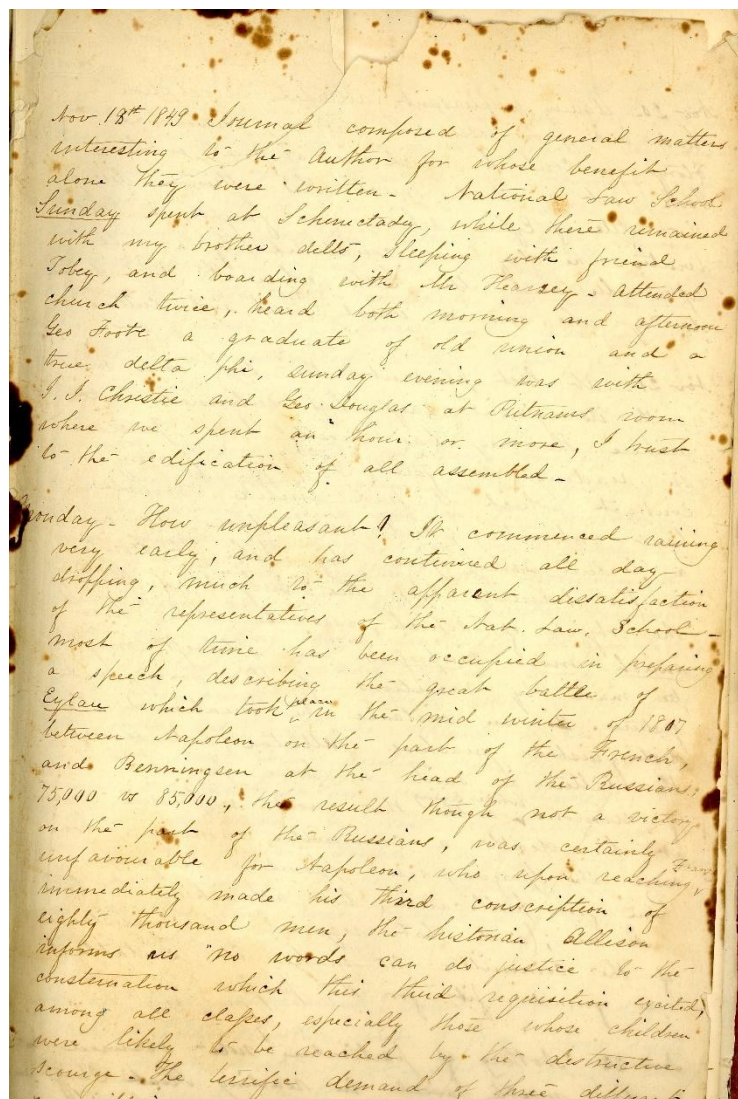 Nov. 18th 1849 Journal composed of general matters
interesting to the Author for whose benefit
alone they were written - National Law School
Sunday spent at Schenectady, while there remained
with my brother delts, Sleeping with friend
Tobey, and boarding with Mr Hearsey - attended
church twice, heard both morning and afternoon
Geo Foote a graduate of old union and a
true delta phi, sunday evening was with
J. J. Christie and Geo Douglas at Putnams room
where we spent an hour or more, I trust
to the edification of all assembled -
Monday - How unpleasant! It commenced raining
very early, and has continued all day
dropping, much to the apparent dissatisfaction
of the representatives of the Nat. Law. School -
most of time has been occupied in preparing
a speech, describing the great battle of
Eylau which took place in the mid winter of 1807
between Napoleon on the part of the French,
and Benningsen at the head of the Russians,
75,000 vs 85,000, the result though not a victory
on the part of the Russians, was certainly
unfavourable for Napoleon, who upon reaching
immediately made his third conscription of
eighty thousand men, the historian Allison
informs us "no words can do justice to the
consternation which this third requisition excited,
among all classes, especially those whose children
were likely to be reached by the destructive
scourge - The terrific demand of three